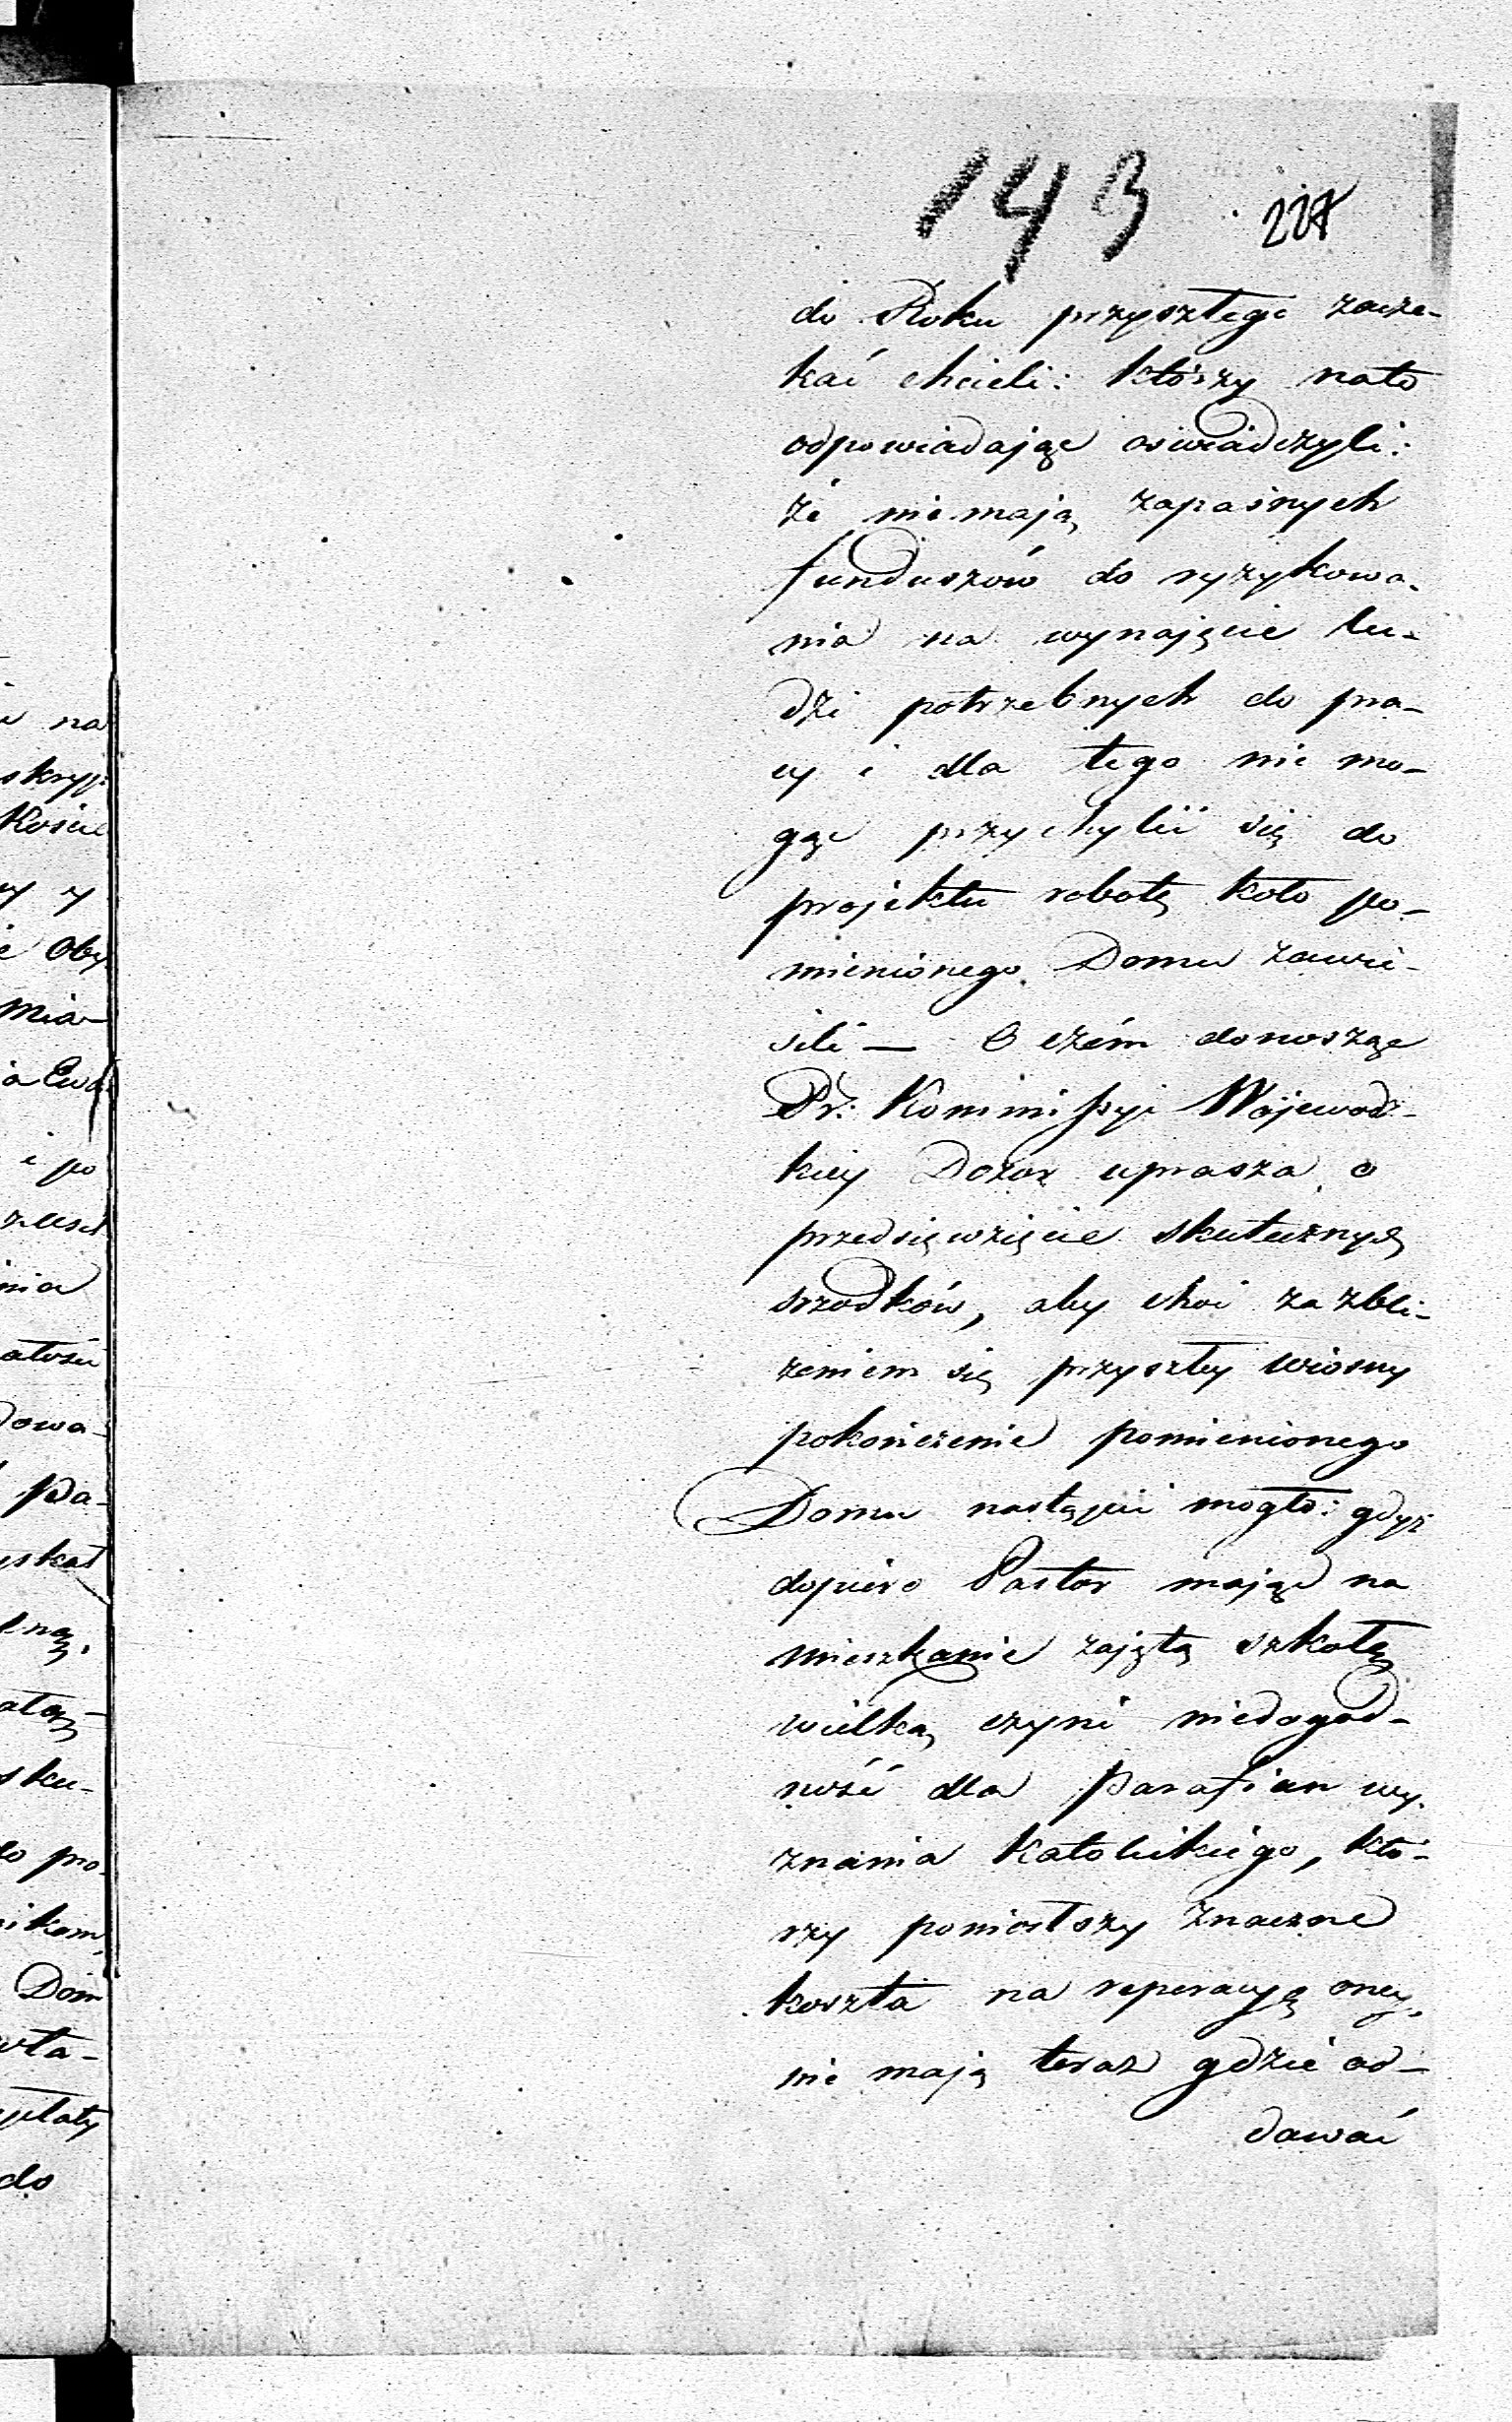 143 227
do Roku przyszłego zacze-
kać chcieli: którzy nato
odpowiadając oswiadczyli:
że nie mają zapasnych
funduszów do ryzykowa-
nia na wynajęcie lu-
dzi potrzebnych do pra-
cy i dla tego nie mo-
gąc przychylić się do
projektu robotę koło po-
mienionego Domu zawie-
sili — O czém donosząc
Pr: Kommissyi Wojewodz-
kiey Dozor uprasza o
przedsięwzięcie skutecznych
srzodków, aby choć za zbli-
żeniem się przyszłey wiosny
pokończenie pomienionego
Domu nastąpić mogło: gdyż
dopiero Pastor mając na
mieszkanie zajętą szkołę
wielką czyni niedogod-
ność dla Parafian wy-
znania Katolickiego, któ-
rzy poniosłszy znaczne
koszta na reperacyą oney,
nie mają teraz gdzie od-
dawać
na
skryp
Kościel
y z
Oby
mia-
i po
nia
ałości
dowa-
Pa-
yskał
lną,
sku-
do pro-
nikom,
Dom
wła-
płaty
do